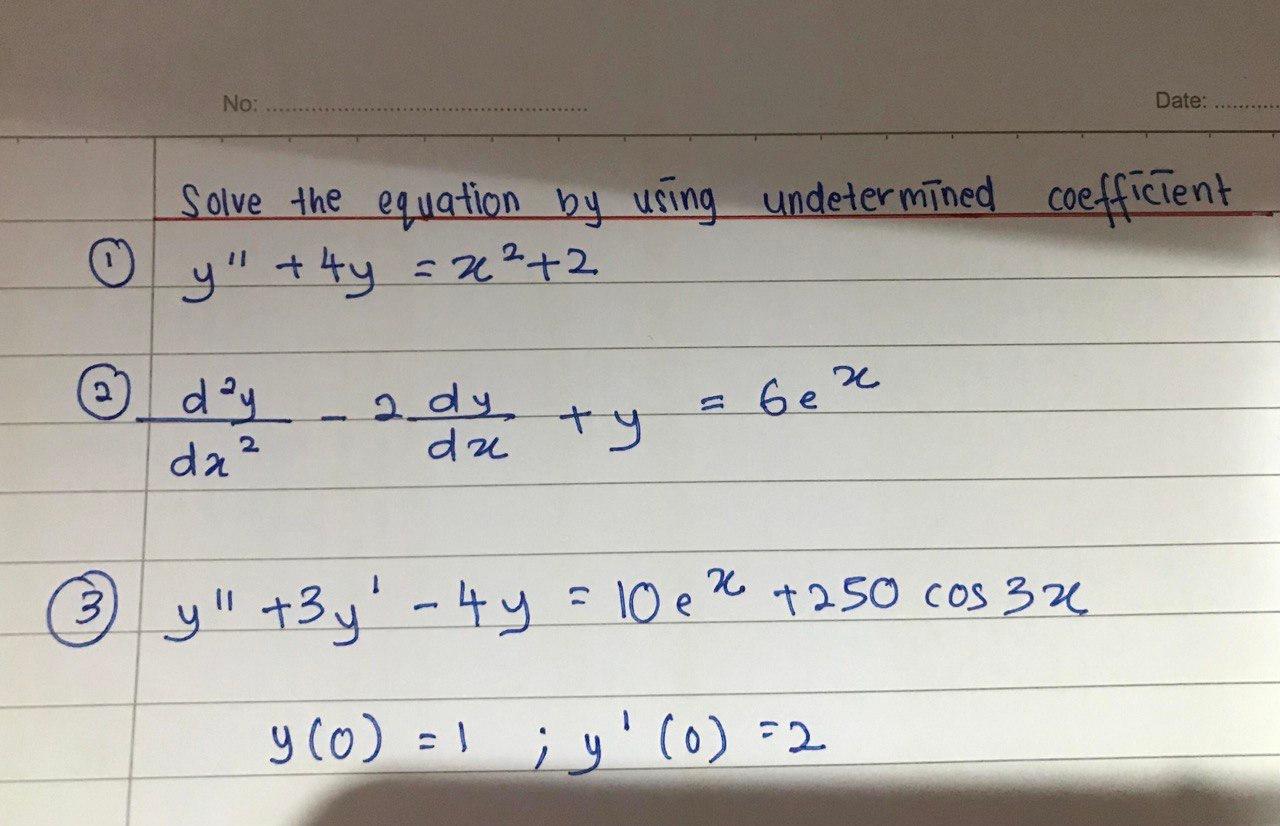 No: ..................................................... Date: ...........
Solve the equation by using undetermined coefficient
① y'' + 4y = x² + 2
② d²y/dx² - 2 dy/dx + y = 6e^x
③ y'' + 3y' - 4y = 10e^x + 250 cos 3x
y(0) = 1 ; y'(0) = 2